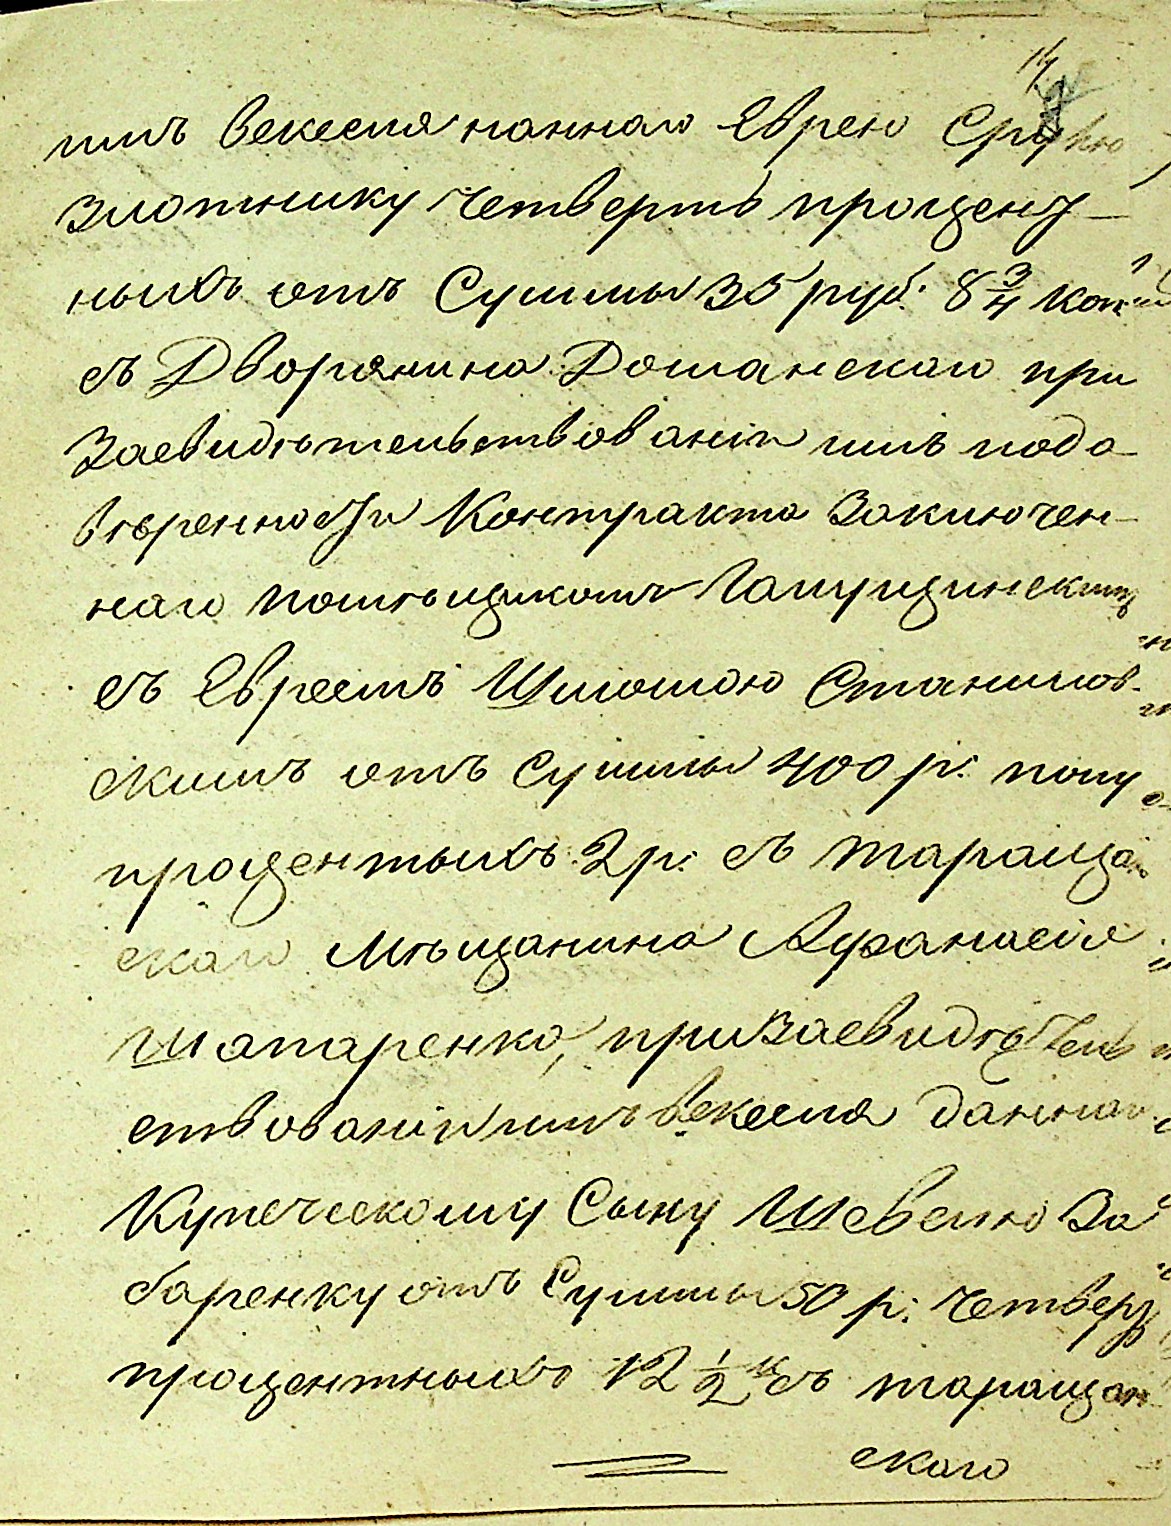 имъ векселя наннаго Еврею Сру
Злотнику четверть процент-
ныхъ отъ Суммы 35 руб. 8 3/4 коп
съ Дворянина Романскаго при
Засвидѣтельствованіи имъ подо-
вѣренности Контракта Заключен-
наго помѣщикомъ
съ Евреемъ Шліомою Станишов-
скимъ отъ Суммы 400 р. полу
процентныхъ 2 р. съ таращан
скаго мѣщанина Афанасія
Шапаренка, при Засвидѣтель
ствованіи имъ векселя даннаго
Купеческому Сыну Шевелю За
баренку отъ Суммы 50 р. четверть
процентныхъ 12 1/2 к съ таращан
скаго